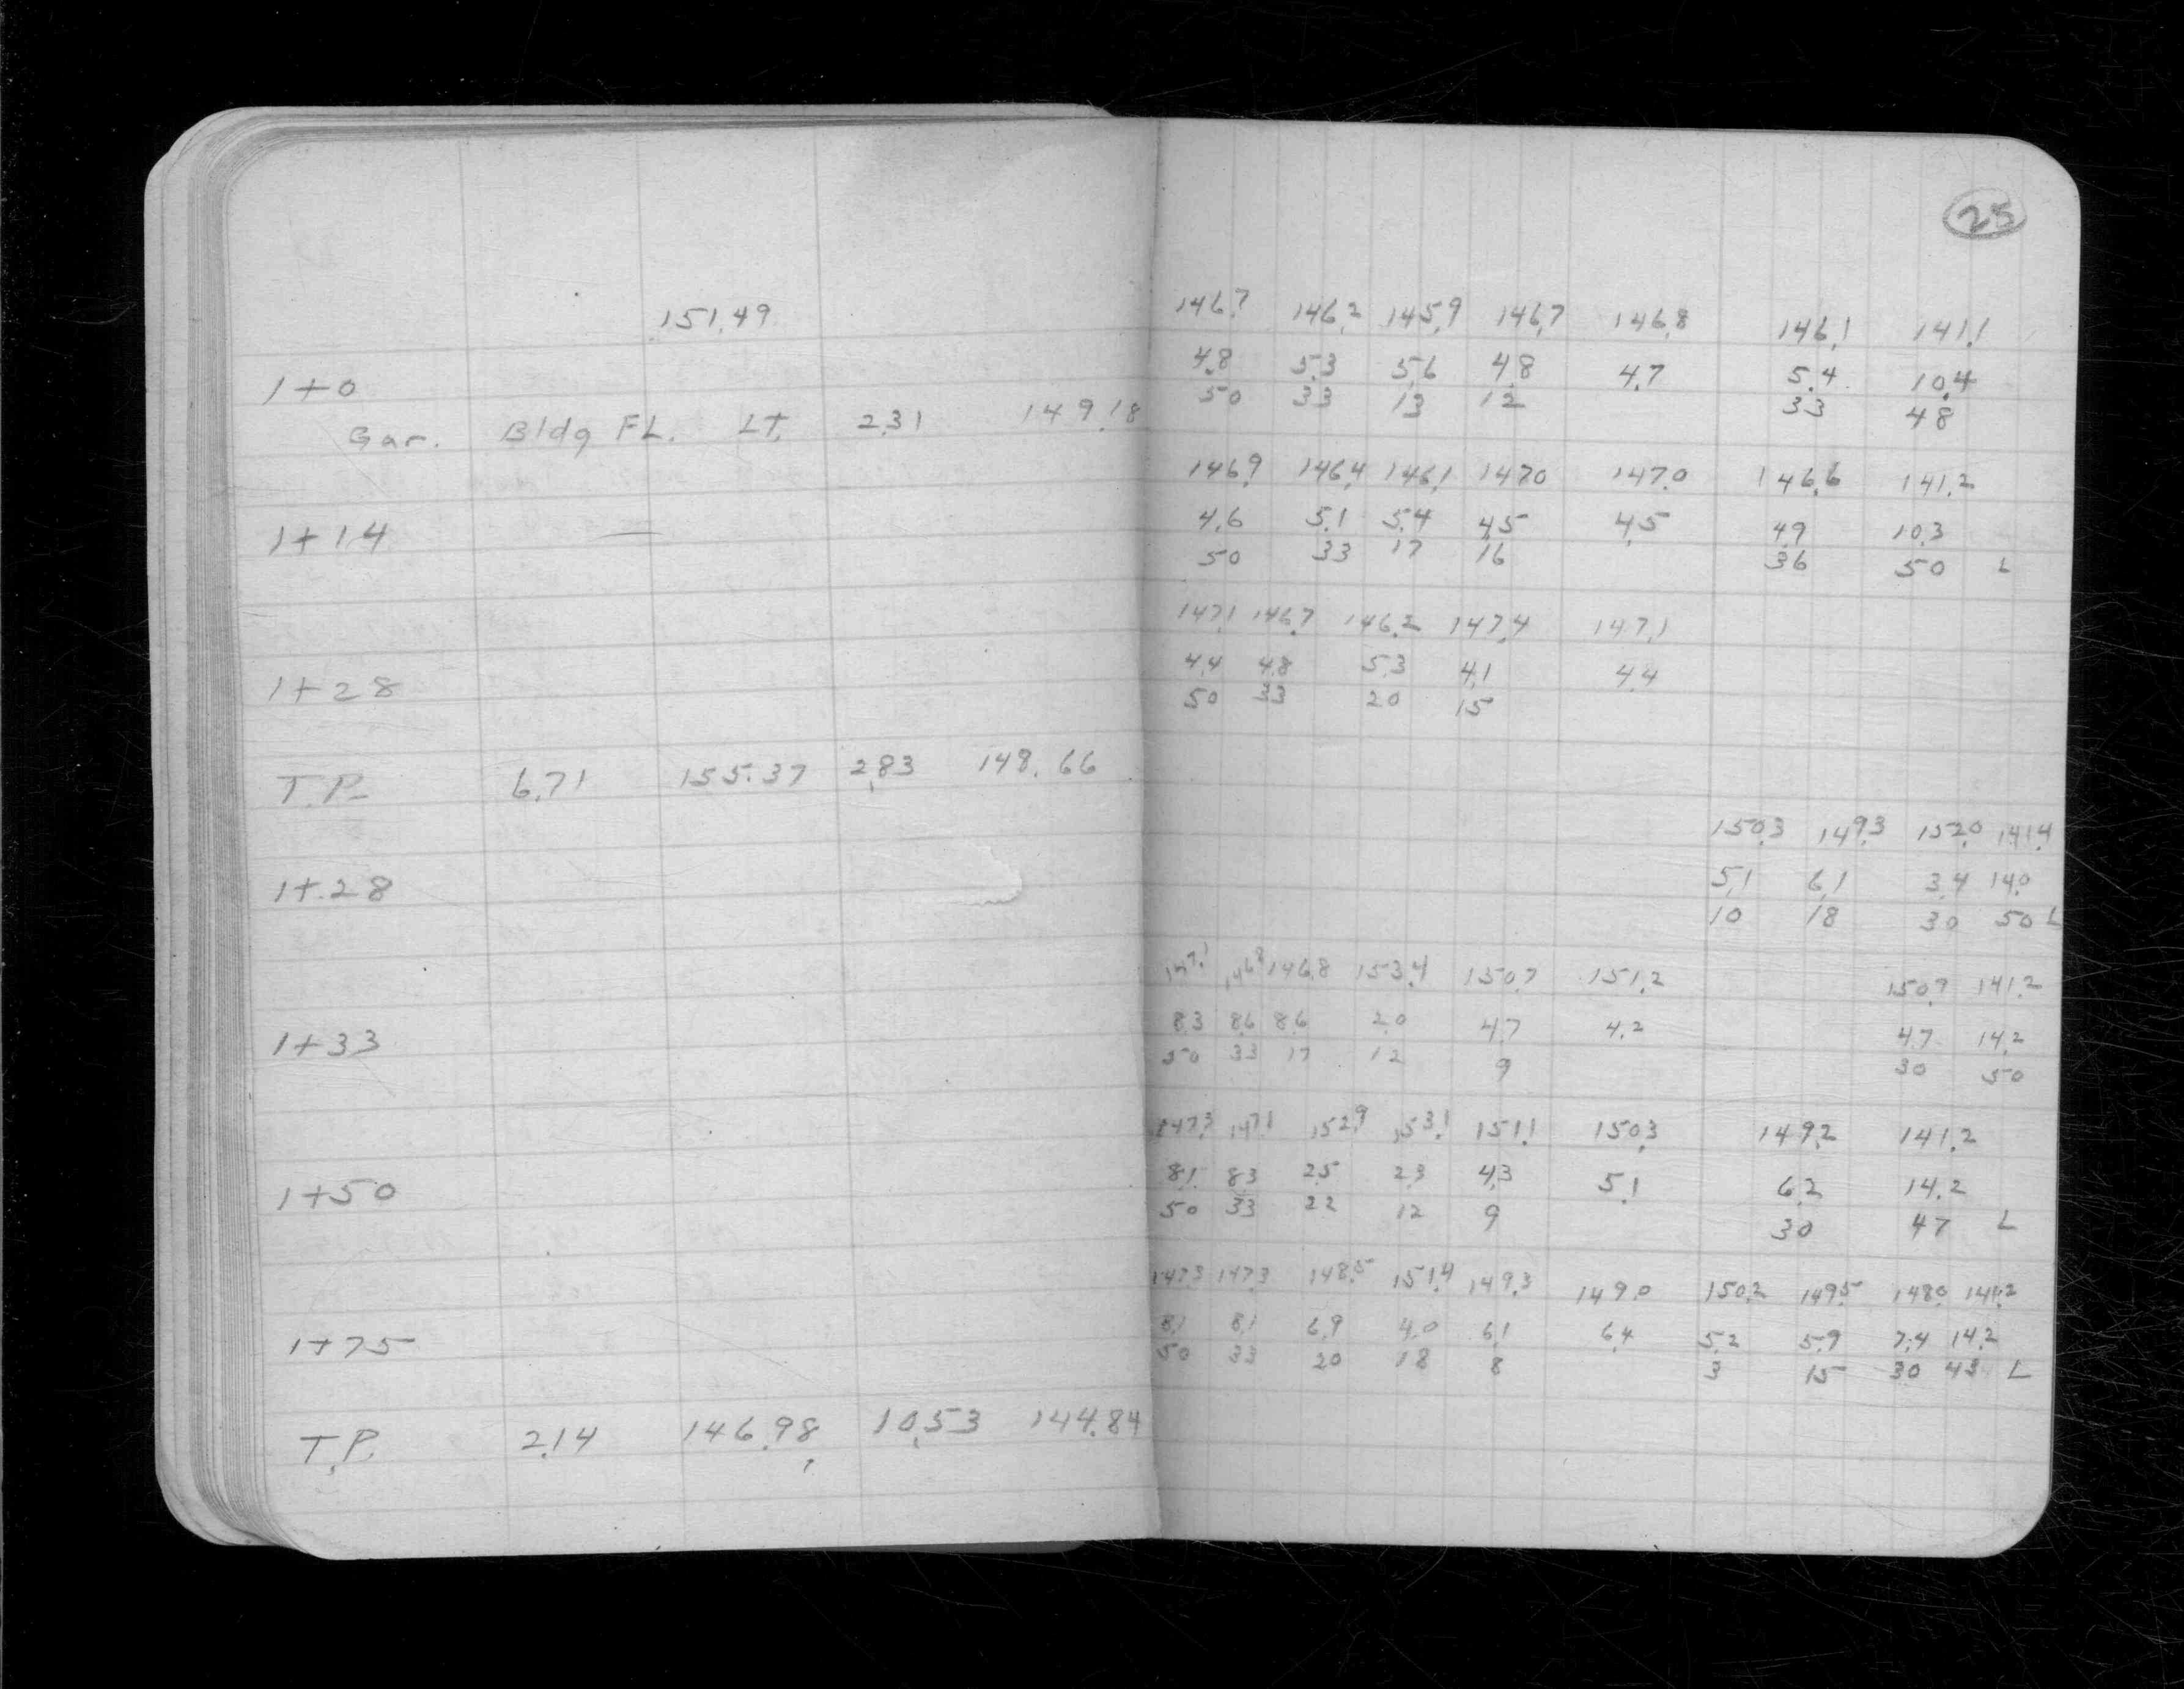 25
151.49 146.7 146.2 145.9 146.7 146.8 146.1 141.1
1+0 4.8 5.3 5.6 4.8 4.7 5.4 10.4
50 33 13 12 33 48
Gar. Bldg FL. LT. 2.31 149.18
146.9 146.4 146.1 147.0 147.0 146.6 141.2
1+14 4.6 5.1 5.4 4.5 4.5 4.9 10.3
50 33 17 16 36 50 L
147.1 146.7 146.2 147.4 147.1
1+28 4.4 4.8 5.3 4.1 4.4
50 33 20 15
T.P. 6.71 155.37 2.83 148.66
150.3 149.3 152.0 141.4
1+28 5.1 6.1 3.4 14.0
10 18 30 50 L
147.1 146.8 146.8 153.4 150.7 151.2 150.7 141.2
1+33 8.3 8.6 8.6 2.0 4.7 4.2 4.7 14.2
50 33 17 12 9 30 50
147.3 147.1 152.9 153.1 151.1 150.3 149.2 141.2
1+50 8.1 8.3 2.5 2.3 4.3 5.1 6.2 14.2
50 33 22 12 9 30 47 L
147.3 147.3 148.5 151.4 149.3 149.0 150.2 149.5 148.0 141.2
1+75 8.1 8.1 6.9 4.0 6.1 6.4 5.2 5.9 7.4 14.2
50 33 20 18 8 3 15 30 43 L
T.P. 2.14 146.98 10.53 144.84